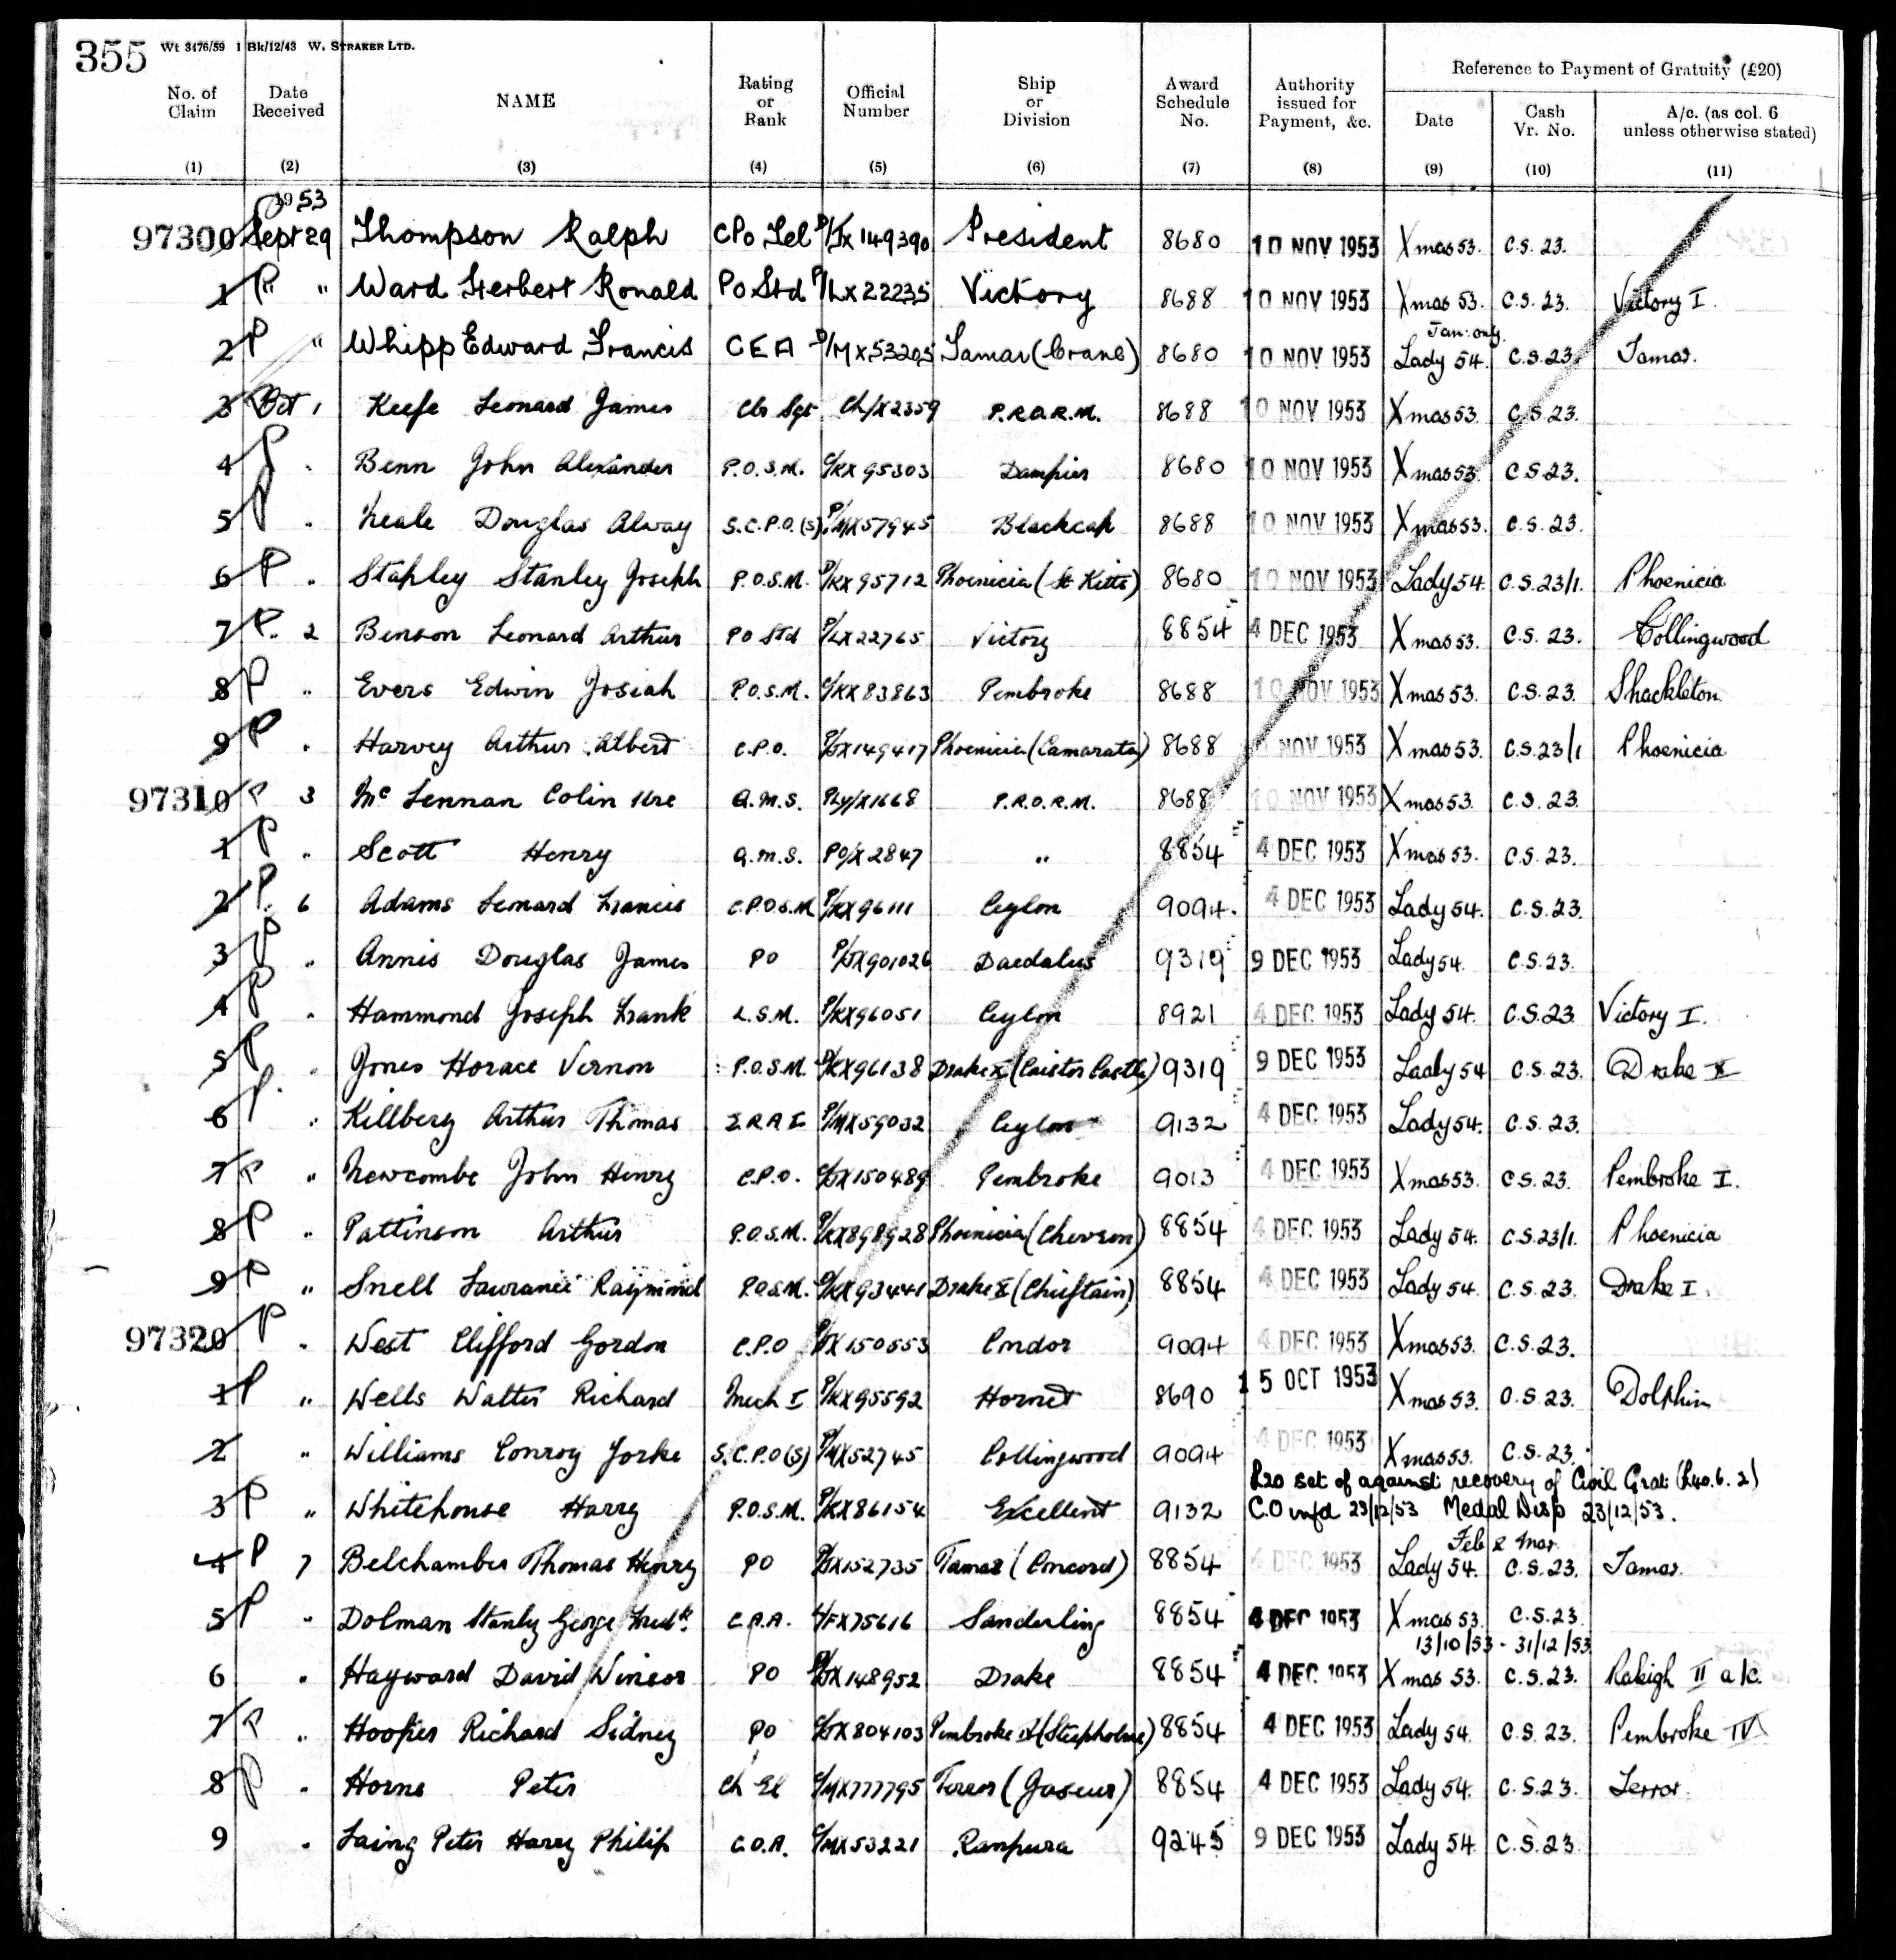 355 Wt 3476/59 1 Bk/12/43 W. STRAKER LTD.
Reference to Payment of Gratuity (£20)
No. of Claim Date Received NAME Rating or Rank Official Number Ship or Division Award Schedule No. Authority issued for Payment, &c. Date Cash Vr. No. A/c. (as col. 6 unless otherwise stated)
(1) (2) (3) (4) (5) (6) (7) (8) (9) (10) (11)
1953
97300 Sept 29 Thompson Ralph CPO Tel P/JX 149390 President 8680 10 NOV 1953 Xmas 53. C.S. 23.
1 P " " Ward Herbert Ronald PO Std P/LX 22235 Victory 8688 10 NOV 1953 Xmas 53. C.S. 23. Victory I.
Jan: only.
2 P " Whipp Edward Francis CEA P/MX 53205 Tamar (Crane) 8680 10 NOV 1953 Lady 54. C.S. 23 Tamar.
3 Oct 1 Keefe Leonard James Clr Sgt Ch/X2359 P.R.O.R.M. 8688 10 NOV 1953 Xmas 53. C.S. 23.
4 P . Benn John Alexander P.O.S.M. C/KX 95303 Dampier 8680 10 NOV 1953 Xmas 53 C.S. 23.
5 P . Neale Douglas Alway S.C.P.O.(S) P/MX57945 Blackcap 8688 10 NOV 1953 Xmas 53. C.S. 23.
6 P . Stapley Stanley Joseph P.O.S.M. P/KX 95712 Phoenicia (St Kitts) 8680 10 NOV 1953 Lady 54. C.S. 23/1. Phoenicia
7 P. 2 Benson Leonard Arthur PO Std P/LX22765 Victory 8854 4 DEC 1953 Xmas 53. C.S. 23. Collingwood
8 P " Evers Edwin Josiah P.O.S.M. C/KX 83863 Pembroke 8688 10 NOV 1953 Xmas 53. C.S. 23. Shackleton
9 P . Harvey Arthur Albert C.P.O. P/JX149417 Phoenicia (Camarata) 8688 NOV 1953 Xmas 53. C.S. 23/1 Phoenicia
97310 P 3 Mc Lennan Colin Ure Q.M.S. Ply/X1668 P.R.O.R.M. 8688 10 NOV 1953 Xmas 53. C.S. 23
1 P . Scott Henry Q.M.S. PO/X 2847 " 8854 4 DEC 1953 Xmas 53. C.S. 23.
2 P. 6 Adams Leonard Francis C.P.O.S.M P/KX 96111 Ceylon 9094. 4 DEC 1953 Lady 54. C.S. 23.
3 P . Annis Douglas James PO P/JX901026 Daedalus 9319 9 DEC 1953 Lady 54. C.S. 23.
4 P . Hammond Joseph Frank L.S.M. P/KX96051 Ceylon 8921 4 DEC 1953 Lady 54. C.S. 23. Victory I.
5 P . Jones Horace Vernon P.O.S.M. KX96138 Drake (Caistor Castle) 9319 9 DEC 1953 Lady 54 C.S. 23. Drake
6 P. . Killbery Arthur Thomas E.R.A I P/MX59032 Ceylon 9132 4 DEC 1953 Lady 54. C.S. 23.
7 P " Newcombe John Henry C.P.O. C/JX150489 Pembroke 9013 4 DEC 1953 Xmas 53. C.S. 23. Pembroke I.
8 P " Pattinson Arthur P.O.S.M. P/KX898928 Phoenicia (Chevron) 8854 4 DEC 1953 Lady 54. C.S. 23/1. Phoenicia
9 P " Snell Lawrance Raymond P.O.S.M. KX93441 Drake (Chieftain) 8854 4 DEC 1953 Lady 54. C.S. 23. Drake I.
97320 P . West Clifford Gordon C.P.O JX 150553 Condor 9094 4 DEC 1953 Xmas 53. C.S. 23.
1 P " Wells Walter Richard Mech I P/KX95592 Hornet 8690 15 OCT 1953 Xmas 53. C.S. 23. Dolphin
2 " Williams Conroy Yorke S.C.P.O (S) P/MX52745 Collingwood 9094 4 DEC 1953 Xmas 53. C.S. 23.
£20 set of against recovery of Civil Grat: (£40. 6. 2)
3 P " Whitehouse Harry P.O.S.M. P/KX86154 Excellent 9132 C.O infd 23/12/53 Medal Disp 23/12/53.
Feb & Mar.
4 P 7 Belchamber Thomas Henry PO P/JX152735 Tamar (Concord) 8854 4 DEC 1953 Lady 54. C.S. 23. Tamar.
5 P " Dolman Stanley George Fredk. C.A.A. L/FX75616 Sanderling 8854 4 DEC 1953 Xmas 53. C.S. 23.
13/10/53 - 31/12/53
6 . Hayward David Winsor PO JX 148952 Drake 8854 4 DEC 1953 Xmas 53. C.S. 23. Raleigh II a/c.
7 P " Hooper Richard Sidney PO C/JX 804103 Pembroke IV (Steepholme) 8854 4 DEC 1953 Lady 54. C.S. 23. Pembroke IV
8 P . Horne Peter Ch El C/MX777795 Terror (Gaseur) 8854 4 DEC 1953 Lady 54. C.S. 23. Terror.
9 . Laing Peter Harry Philip C.O.A. C/MX53221 Ranpura 9245 9 DEC 1953 Lady 54 C.S. 23